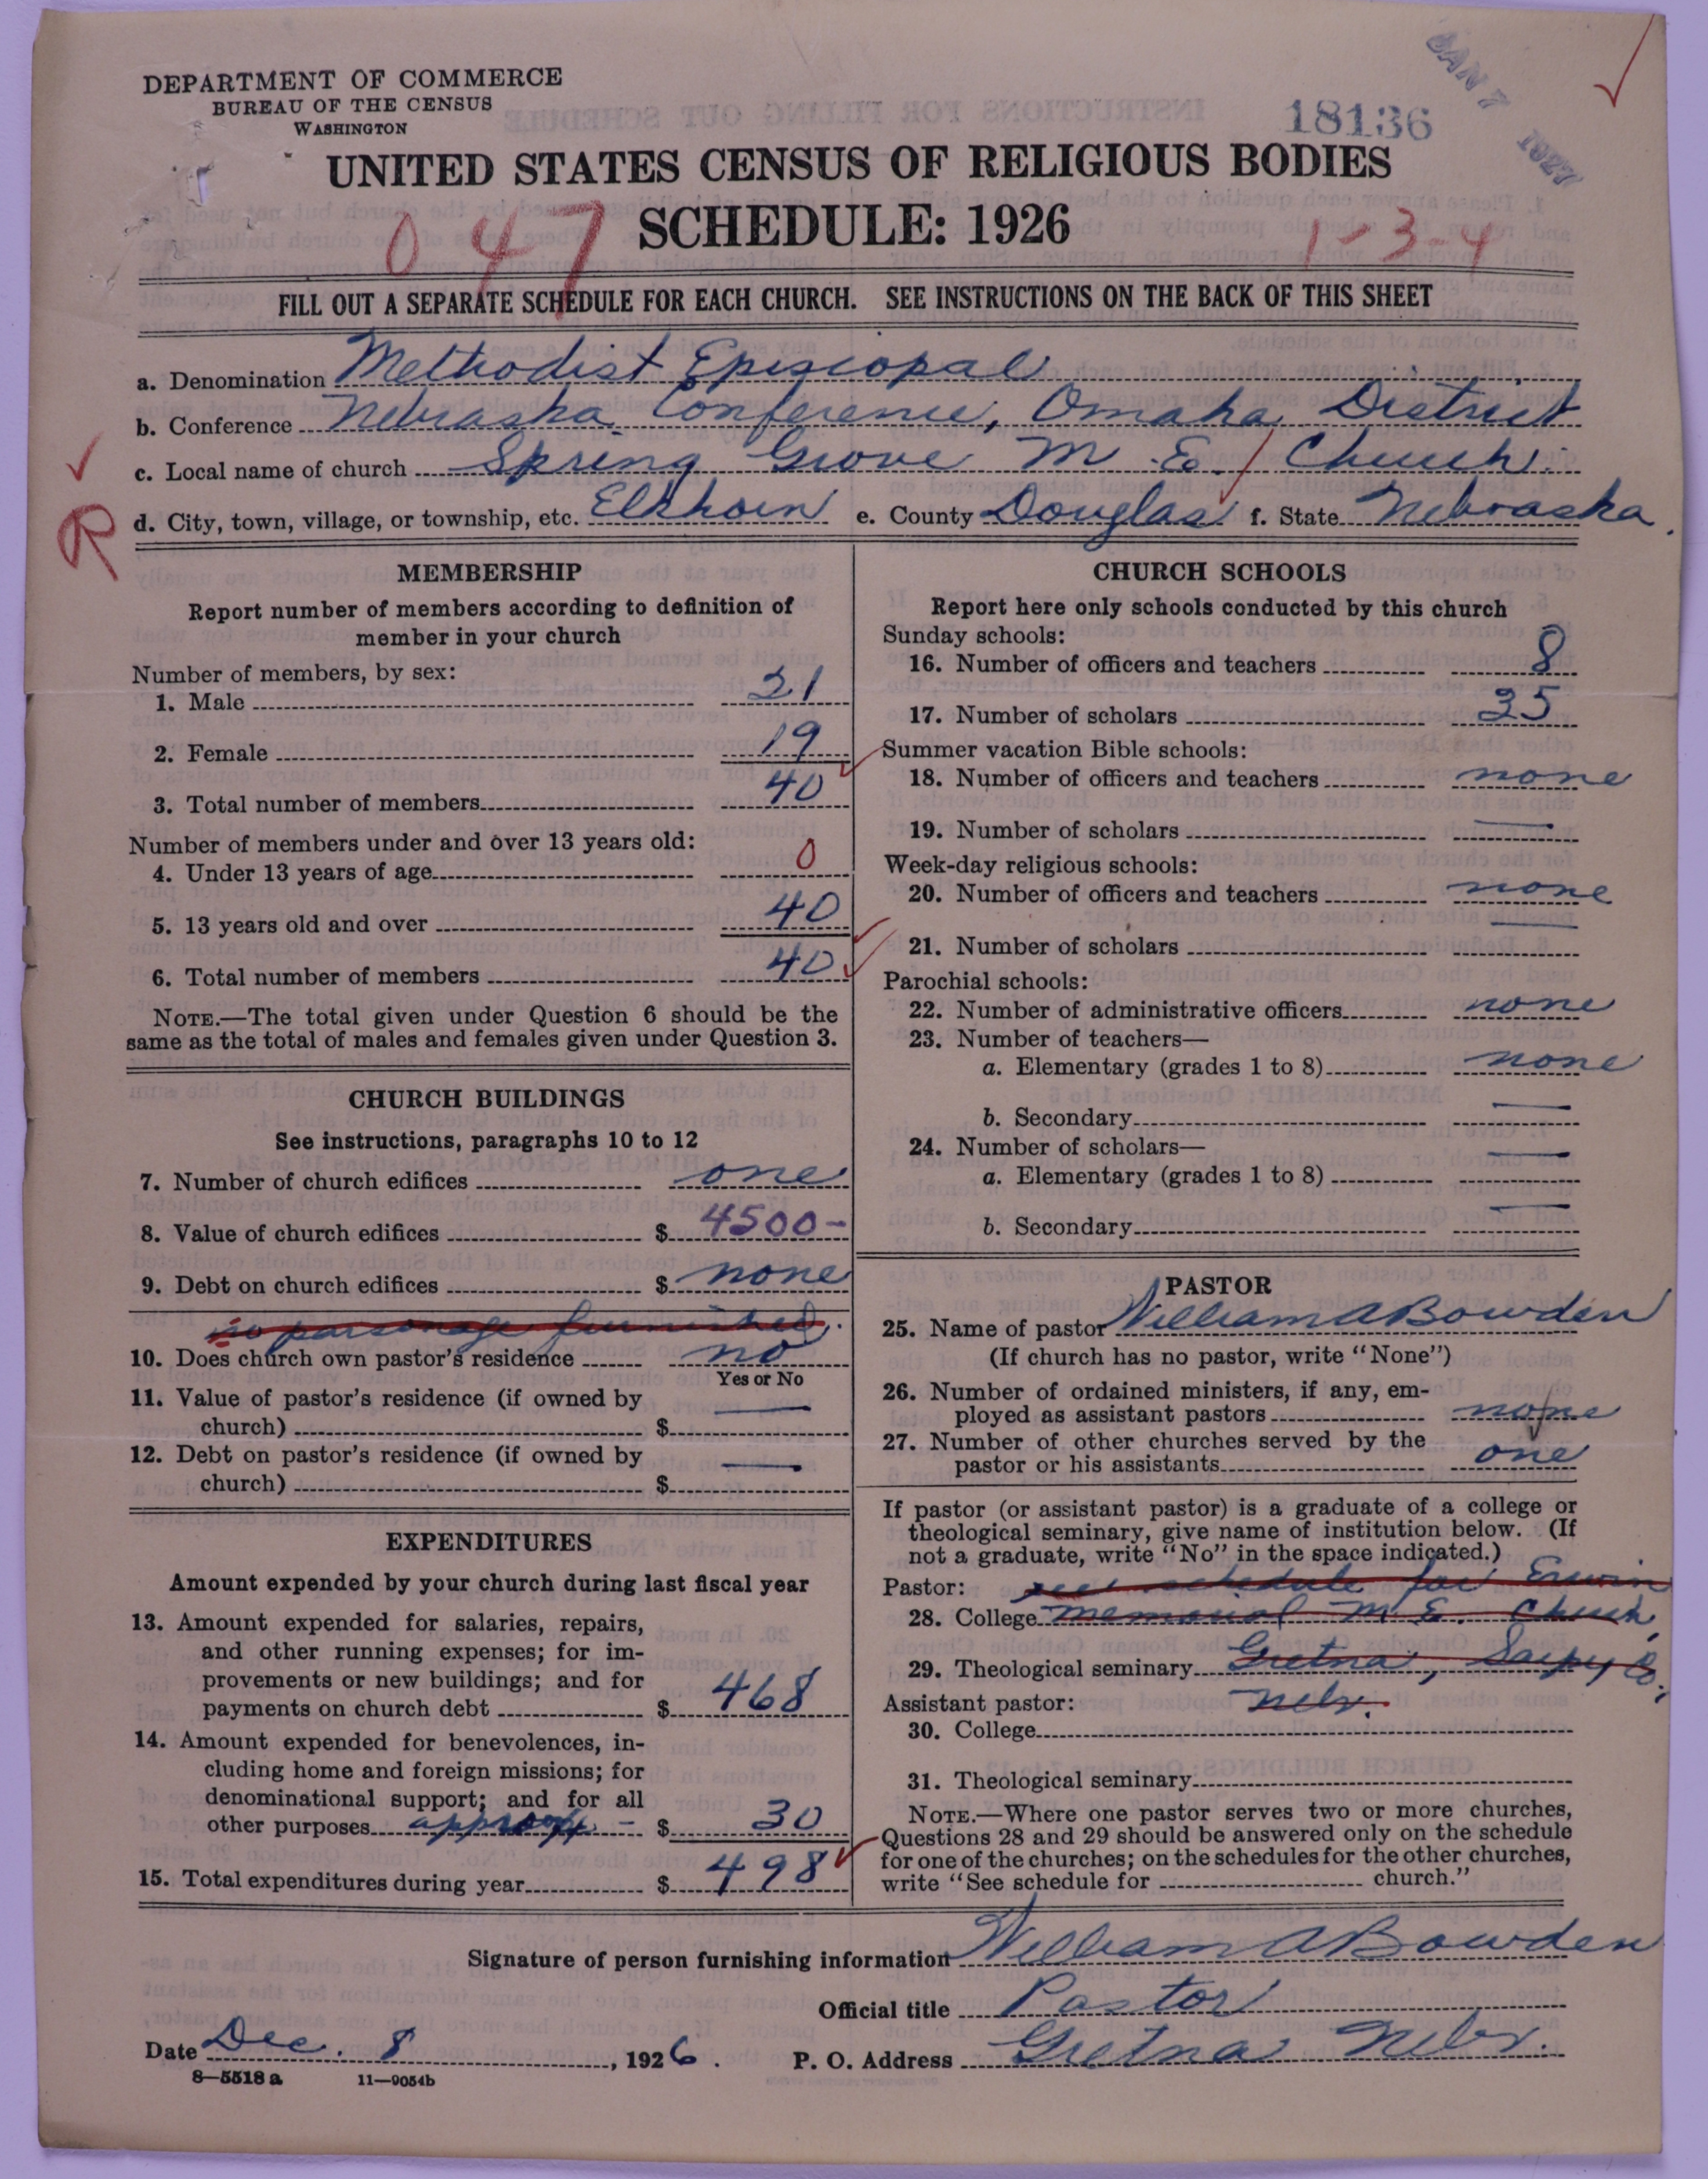 DEPARTMENT OF COMMERCE
BUREAU OF THE CENSUS
WASHINGTON
JAN 7 1927
18136
UNITED STATES CENSUS OF RELIGIOUS BODIES
SCHEDULE: 1926
047
1-3-4
FILL OUT A SEPARATE SCHEDULE FOR EACH CHURCH. SEE INSTRUCTIONS ON THE BACK OF THIS SHEET
a. Denomination Methodist Episcopal
b. Conference Nebraska Conference, Omaha District
c. Local name of church Spring Grove M.E. Church
R
d. City, town, village, or township, etc. Elkhorn e. County Douglas f. State Nebraska.
MEMBERSHIP
Report number of members according to definition of
member in your church
Number of members, by sex:
1. Male 21
2. Female 19
3. Total number of members 40
Number of members under and over 13 years old:
4. Under 13 years of age 0
5. 13 years old and over 40
6. Total number of members 40
NOTE.—The total given under Question 6 should be the
same as the total of males and females given under Question 3.
CHURCH BUILDINGS
See instructions, paragraphs 10 to 12
7. Number of church edifices one
8. Value of church edifices $ 4500-
9. Debt on church edifices $ none
no parsonage furnished.
10. Does church own pastor's residence no
Yes or No
11. Value of pastor's residence (if owned by
church) $ —
12. Debt on pastor's residence (if owned by
church) $ —
EXPENDITURES
Amount expended by your church during last fiscal year
13. Amount expended for salaries, repairs,
and other running expenses; for im-
provements or new buildings; and for
payments on church debt $ 468
14. Amount expended for benevolences, in-
cluding home and foreign missions; for
denominational support; and for all
other purposes approx - $ 30
15. Total expenditures during year $ 498
CHURCH SCHOOLS
Report here only schools conducted by this church
Sunday schools:
16. Number of officers and teachers 8
17. Number of scholars 35
Summer vacation Bible schools:
18. Number of officers and teachers none
19. Number of scholars —
Week-day religious schools:
20. Number of officers and teachers none
21. Number of scholars —
Parochial schools:
22. Number of administrative officers none
23. Number of teachers—
a. Elementary (grades 1 to 8) none
b. Secondary —
24. Number of scholars—
a. Elementary (grades 1 to 8) —
b. Secondary —
PASTOR
25. Name of pastor William A Bowden
(If church has no pastor, write "None")
26. Number of ordained ministers, if any, em-
ployed as assistant pastors none
27. Number of other churches served by the
pastor or his assistants one
If pastor (or assistant pastor) is a graduate of a college or
theological seminary, give name of institution below. (If
not a graduate, write "No" in the space indicated.)
Pastor: see schedule for Erwin
28. College Memorial M.E. Church,
29. Theological seminary Gretna, Sarpy Co.,
Assistant pastor: Nebr.
30. College
31. Theological seminary
NOTE.—Where one pastor serves two or more churches,
Questions 28 and 29 should be answered only on the schedule
for one of the churches; on the schedules for the other churches,
write "See schedule for church."
Signature of person furnishing information William A Bowden
Official title Pastor
Date Dec. 8, 1926. P. O. Address Gretna Nebr.
8—5518 a 11—9054b